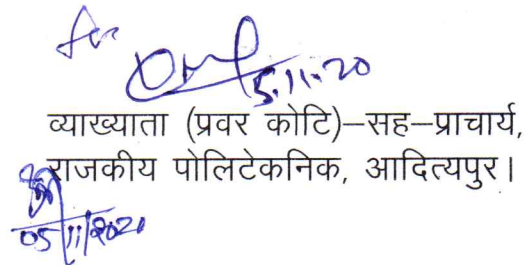 for
5.11.20
व्याख्याता (प्रवर कोटि)–सह–प्राचार्य,
राजकीय पोलिटेकनिक, आदित्यपुर।
05/11/2020